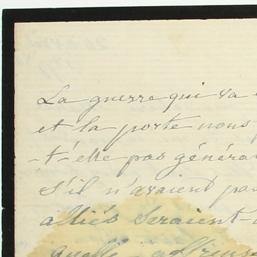 La guerre qui va
et la porte nous
-t'-elle pas généra
S'il n'avaient pas
alliés seraient-